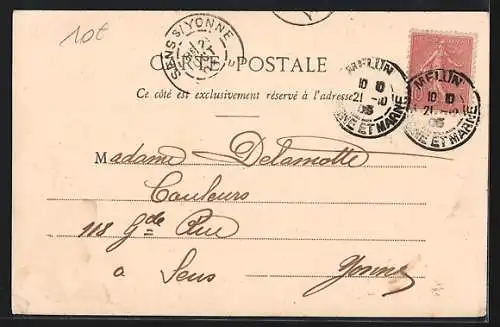 10€
SENS S/YONNE
CARTE POSTALE
MELUN
10 10
21 -10
05
SEINE ET MARNE
MELUN
10 10
21 -10
05
SEINE ET MARNE
Ce côté est exclusivement réservé à l'adresse
Madame Delamotte
Couleurs
118 Gde Rue
a Sens Yonne